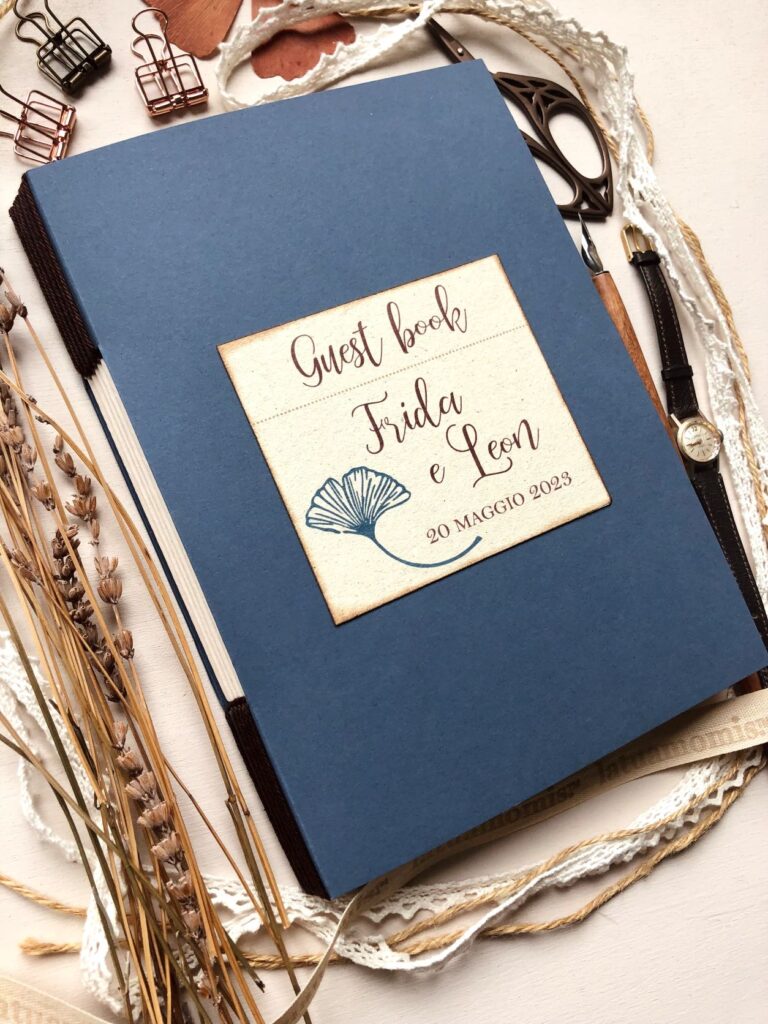 Guest book
Frida
e Leon
20 MAGGIO 2023